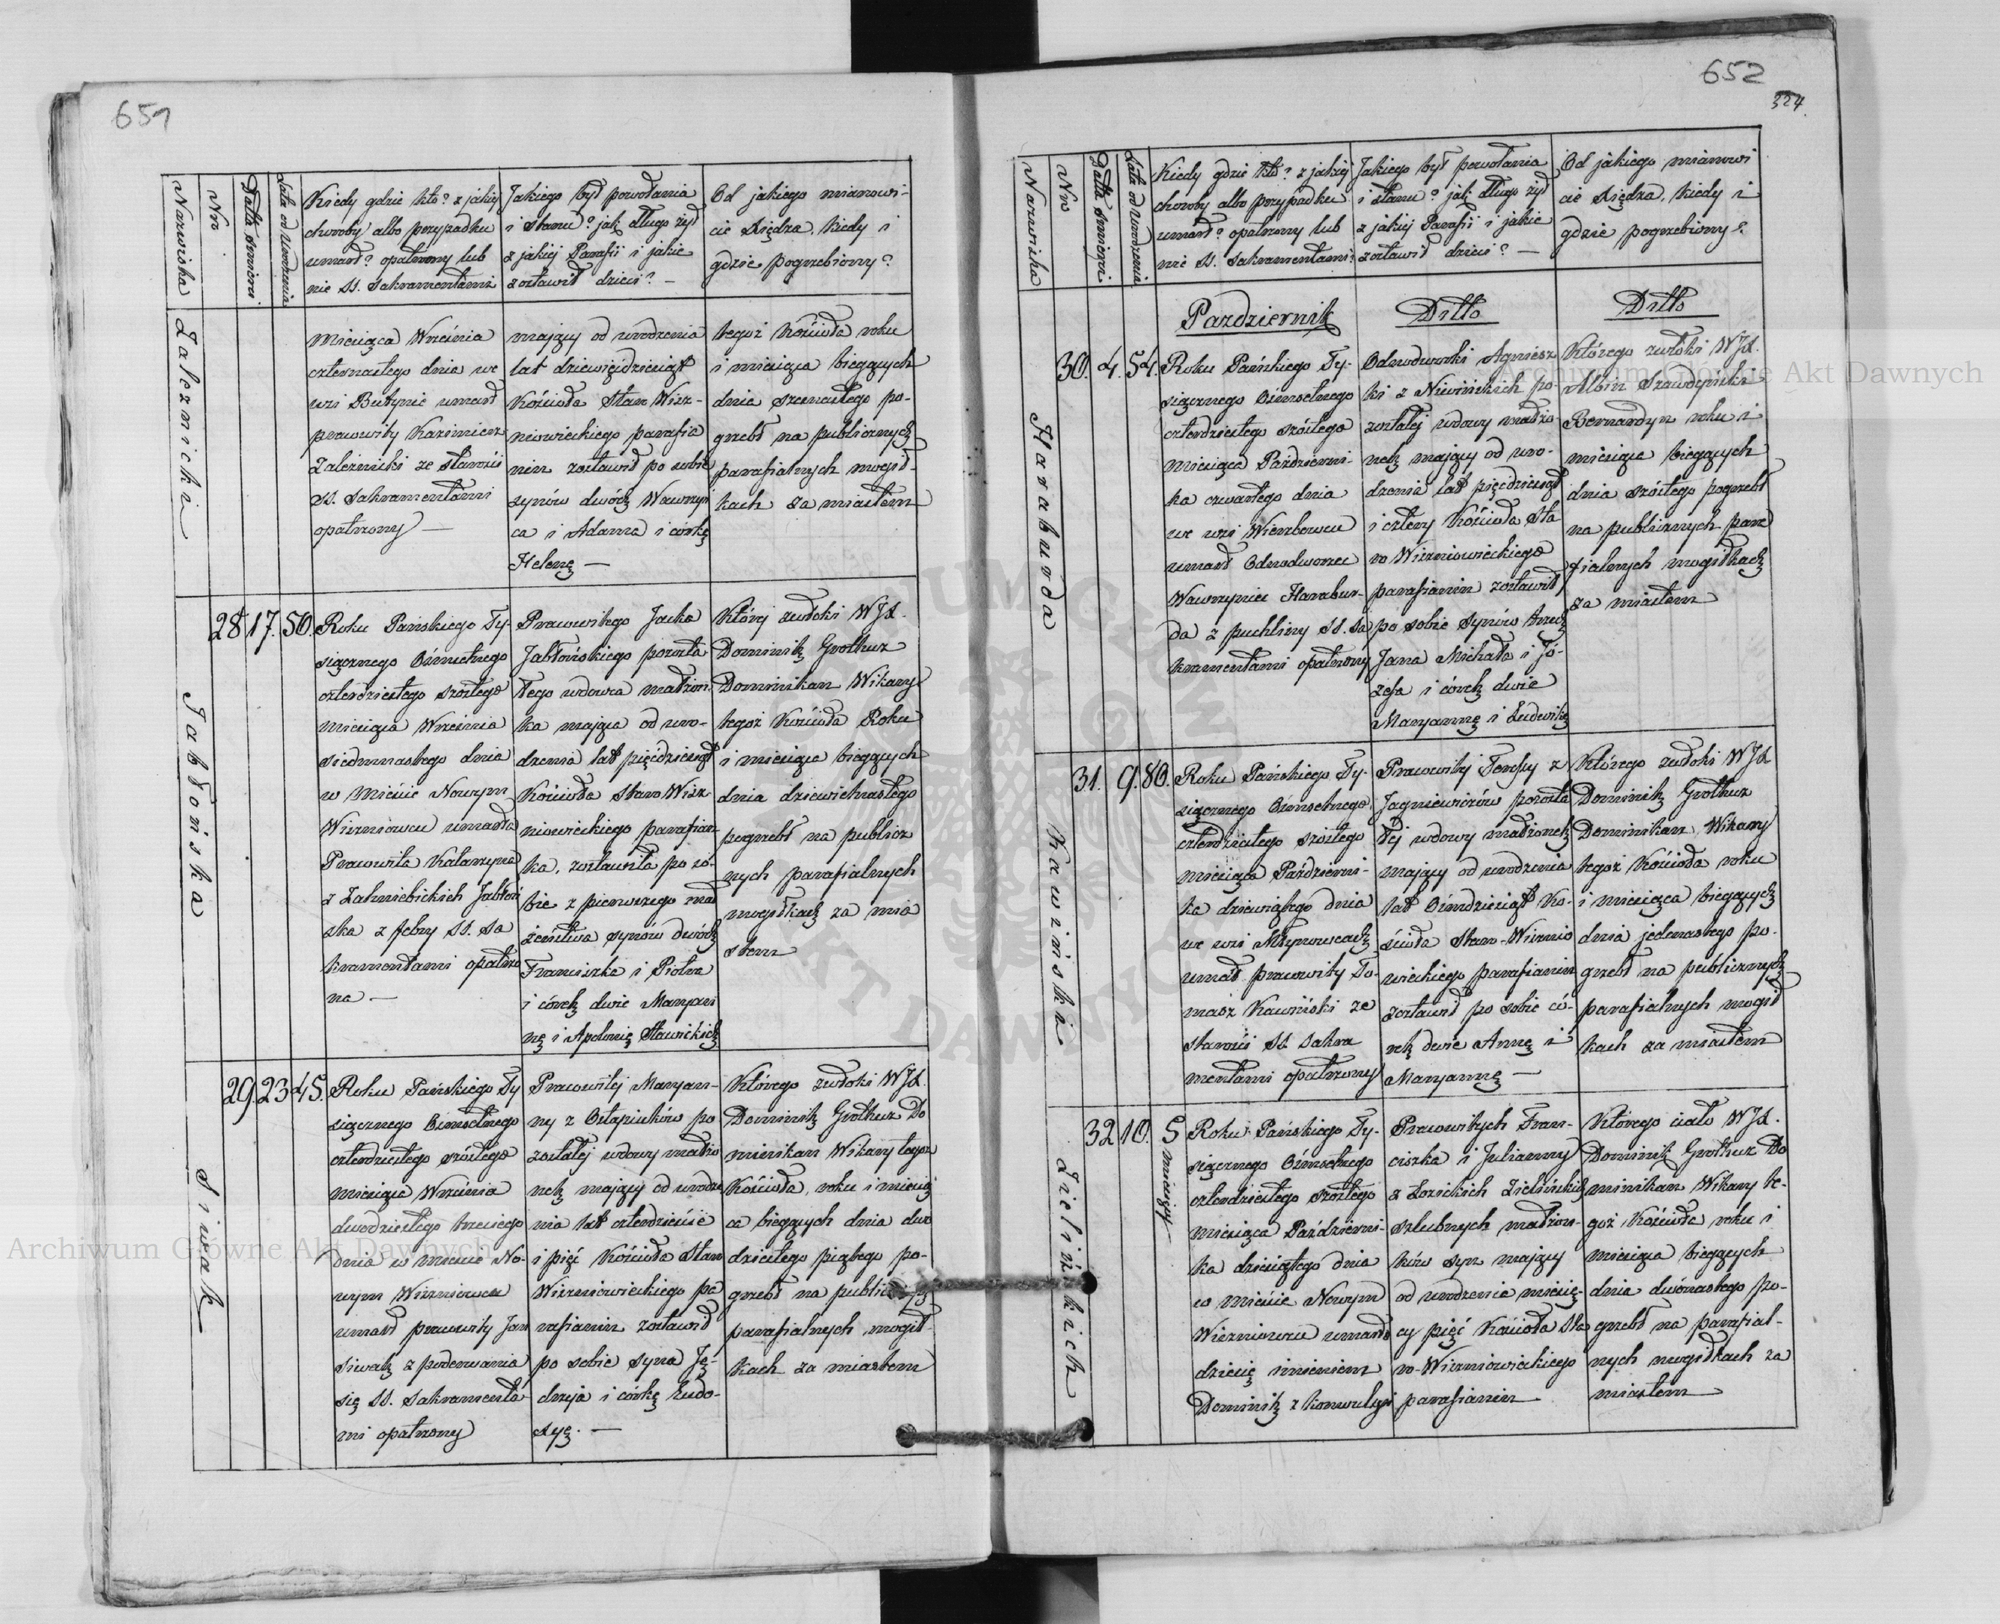 651
Nazwiska
Nro
Datta śmierci
Lata od urodzenia
Kiedy gdzie kto? z jakiej
choroby albo przypadku
umarł? opatrzony lub
nie SS. Sakramentami
Jakiego był powołania
i stanu? jak długo żył
z jakiej Parafii i jakie
zostawił dzieci? —
Od jakiego mianowi-
cie Księdza, kiedy i
gdzie pogrzebiony?
Zaleznicki
Miesiąca Wrzesnia
czternastego dnia we
wsi Butynie umarł
pracowity Kazimierz
Zalezniski ze starości
SS. Sakramentami
opatrzony —
mający od urodzenia
lat dziewięćdziesiąt
Kościoła Staro Wisz-
niowieckiego parafia
nin zostawił po sobie
synów dwóch Wawrzyń
ca i Adama i córkę
Helenę —
tegoż Kościoła roku
i miesiąca bieżących
dnia szesnastego po-
grzebł na publicznych
parafialnych mogił-
kach za miastem
Jabłońska
28
17.
50.
Roku Pańskiego Ty-
siącznego Ośmsetnego
czterdziestego szóstego
Miesiąca Wrzesnia
siedmnastego dnia
w Mieście Nowym
Wiszniowcu umarła
Pracowita Katarzyna
z Jabłoń
ska z febry SS. Sa
kramentami opatrzo
na —
Pracowitego Jacka
Jabłońskiego pozosta
łego wdowca małżon
ka mająca od uro-
dzenia lat pięćdziesiąt
Kościoła Staro Wisz-
niowieckiego parafian
ka, zostawiła po so-
bie z pierwszego mał
żeństwa synów dwóch
Franciszka i Piotra
i córek dwie Maryan
nę i Apolonię Sławickich
Której zwłoki WJX.
Dominik Grothuz
Dominikan Wikary
tegoż Kościoła Roku
i miesiąca bieżących
dnia dziewietnastego
pogrzebł na publicz
nych parafialnych
mogiłkach za mia
stem
Siwak
29.
23
45.
Roku Pańskiego Ty
siącznego Ośmsetnego
czterdziestego szóstego
Miesiąca Wrzesnia
dwódziestego trzeciego
dnia w mieście No-
wym Wiszniowcu
umarł pracowity Jan
Siwak z poderwania
się SS. Sakramenta
mi opatrzony
Pracowitej Maryan-
ny z Ostapiuków po
zostałej wdowy małżo
nek mający od urodze
nia lat czterdzieście
i pięć Kościoła Staro
Wiszniowieckiego pa
rafianin zostawił
po sobie syna Ję-
drzeja i córkę Eudo-
xyę. —
Którego zwłoki WJX.
Dominik Grothuz Do
minikan Wikary tegoż
Kościoła, roku i miesią
ca bieżących dnia dwo
dziestego piątego po-
grzebł na publicznych
parafialnych mogił-
kach za miastem
652
324.
Nazwiska
Nro
Datta śmierci
Lata od urodzenia
Kiedy gdzie kto? z jakiej
choroby albo przypadku
umarł? opatrzony lub
nie SS. Sakramentami?
Jakiego był powołania
i stanu? jak długo żył
z jakiej Parafii i jakie
zostawił dzieci? —
Od jakiego mianowi
cie Księdza, kiedy i
gdzie pogrzebiony?
Pazdziernik
Ditto
Ditto
Haraburda
30.
4.
54.
Roku Pańskiego Ty-
siącznego Ośmsetnego
czterdziestego szóstego
Miesiąca Pazdzierni-
ka czwartego dnia
we wsi Wierzbowcu
umarł Odnodworzec
Wawrzyniec Harabur-
da z puchliny SS. Sa
kramentami opatrzony
Odnodworki Agniesz
ki z Niewińskich po-
zostałej wdowy małżo-
nek mający od uro-
dzenia lat pięćdziesiąt
i cztery Kościoła Sta
ro Wiszniowieckiego
parafianin zostawił
po sobie synów trzech
Jana Michała i Jó-
zefa i córek dwie
Maryannę i Ludwikę
Którego zwłoki WJX.
Albin
Bernardyn roku i
miesiąca bieżących
dnia szóstego pogrzebł
na publicznych para
fialnych mogiłkach
za miastem
Kawiński
31.
9.
80.
Roku Pańskiego Ty-
siącznego Ośmsetnego
czterdziestego szóstego
miesiąca Pazdzierni-
ka dziewiątego dnia
we wsi Młynowcach
umarł pracowity To-
masz Kawiński ze
starości SS. Sakra
mentami opatrzony
Pracowitej Teresy z
Jagniewiczów pozosta
łej wdowy małżonek
mający od urodzenia
lat Ośmdziesiąt Ko-
ścioła Staro-Wisznio
wieckiego parafianin
zostawił po sobie có-
rek dwie Annę i
Maryannę —
Którego zwłoki WJX
Dominik Grothuz
Dominikan Wikary
tegoż Kościoła roku
i miesiąca bieżących
dnia jedenastego po-
grzebł na publicznych
parafialnych mogił
kach za miastem
Zielińskich
32
10.
5 miesięcy
Roku Pańskiego Ty-
siącznego Ośmsetnego
czterdziestego szóstego
Miesiąca Pazdzierni-
ka dziesiątego dnia
w mieście Nowym
Wiszniowcu umarło
dziecię imieniem
Dominik z konwulsyi
Pracowitych Fran-
ciszka i Julianny
z Łozickich Zielińskich
szlubnych małżon-
ków syn mający
od urodzenie miesię-
cy pięć Kościoła Sta
ro-Wiszniowieckiego
parafianin —
Którego ciało WJX.
Dominik Grothuz Do
minikan Wikary te-
goż Kościoła roku i
miesiąca bieżących
dnia dwónastego po-
grzebł na parafial-
nych mogiłkach za
miastem
Archiwum Główne Akt Dawnych
Archiwum Główne Akt Dawnych